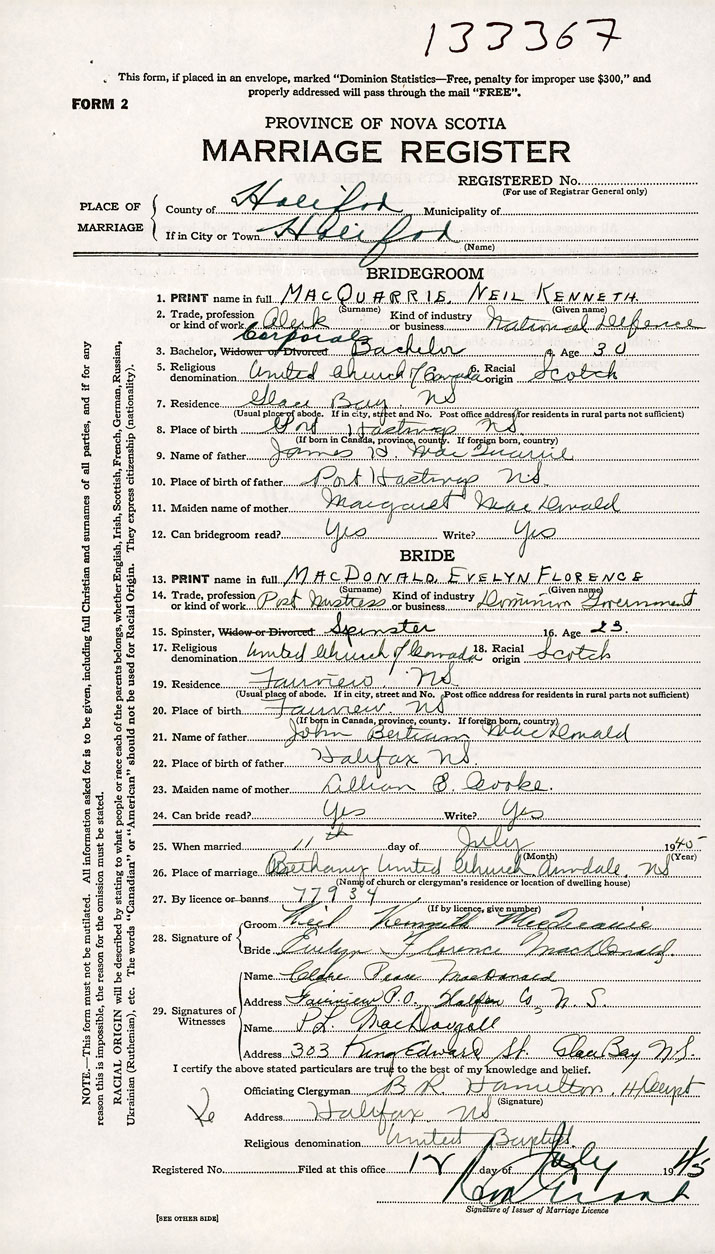 133367
This form, if placed in an envelope, marked "Dominion Statistics—Free, penalty for improper use $300," and
properly addressed will pass through the mail "FREE".
FORM 2
PROVINCE OF NOVA SCOTIA
MARRIAGE REGISTER
REGISTERED No.
(For use of Registrar General only)
PLACE OF MARRIAGE
County of Halifax Municipality of
If in City or Town Halifax
(Name)
NOTE.—This form must not be mutilated. All information asked for is to be given, including full Christian and surnames of all parties, and if for any
reason this is impossible, the reason for the omission must be stated.
RACIAL ORIGIN will be described by stating to what people or race each of the parents belongs, whether English, Irish, Scottish, French, German, Russian,
Ukrainian (Ruthenian), etc. The words "Canadian" or "American" should not be used for Racial Origin. They express citizenship (nationality).
BRIDEGROOM
1. PRINT name in full MACQUARRIE, NEIL KENNETH
(Surname) (Given name)
2. Trade, profession or kind of work Clerk Corporal Kind of industry or business National Defence
3. Bachelor, Widower or Divorced Bachelor 4. Age 30
5. Religious denomination United Church of Canada 6. Racial origin Scotch
7. Residence Glace Bay, NS
(Usual place of abode. If in city, street and No. Post office address for residents in rural parts not sufficient)
8. Place of birth Port Hastings NS.
(If born in Canada, province, county. If foreign born, country)
9. Name of father James H. MacQuarrie
10. Place of birth of father Port Hastings N.S.
11. Maiden name of mother Margaret MacDonald
12. Can bridegroom read? Yes Write? Yes
BRIDE
13. PRINT name in full MACDONALD, EVELYN FLORENCE
(Surname) (Given name)
14. Trade, profession or kind of work Post Mistress Kind of industry or business Dominion Government
15. Spinster, Widow or Divorced Spinster 16. Age 23.
17. Religious denomination United Church of Canada 18. Racial origin Scotch
19. Residence Fairview, NS.
(Usual place of abode. If in city, street and No. Post office address for residents in rural parts not sufficient)
20. Place of birth Fairview. NS
(If born in Canada, province, county. If foreign born, country)
21. Name of father John Bertram MacDonald
22. Place of birth of father Halifax NS.
23. Maiden name of mother Lillian E. Cooke.
24. Can bride read? Yes Write? Yes
25. When married 11th day of July 1945
(Month) (Year)
26. Place of marriage Bethany United Church Armdale, NS
(Name of church or clergyman's residence or location of dwelling house)
27. By licence or banns 77934
(If by licence, give number)
28. Signature of
Groom Neil Kenneth MacQuarrie
Bride Evelyn Florence MacDonald.
29. Signatures of Witnesses
Name MacDonald
Address Fairview P.O., Halifax Co, N. S.
Name P.L. MacDougall
Address 303 King Edward St. Glace Bay N.S.
I certify the above stated particulars are true to the best of my knowledge and belief.
Officiating Clergyman B R Hamilton
(Signature)
Address Halifax, NS
Religious denomination United Baptist
Registered No. Filed at this office 12 day of July 1945
Signature of Issuer of Marriage Licence
[SEE OTHER SIDE]